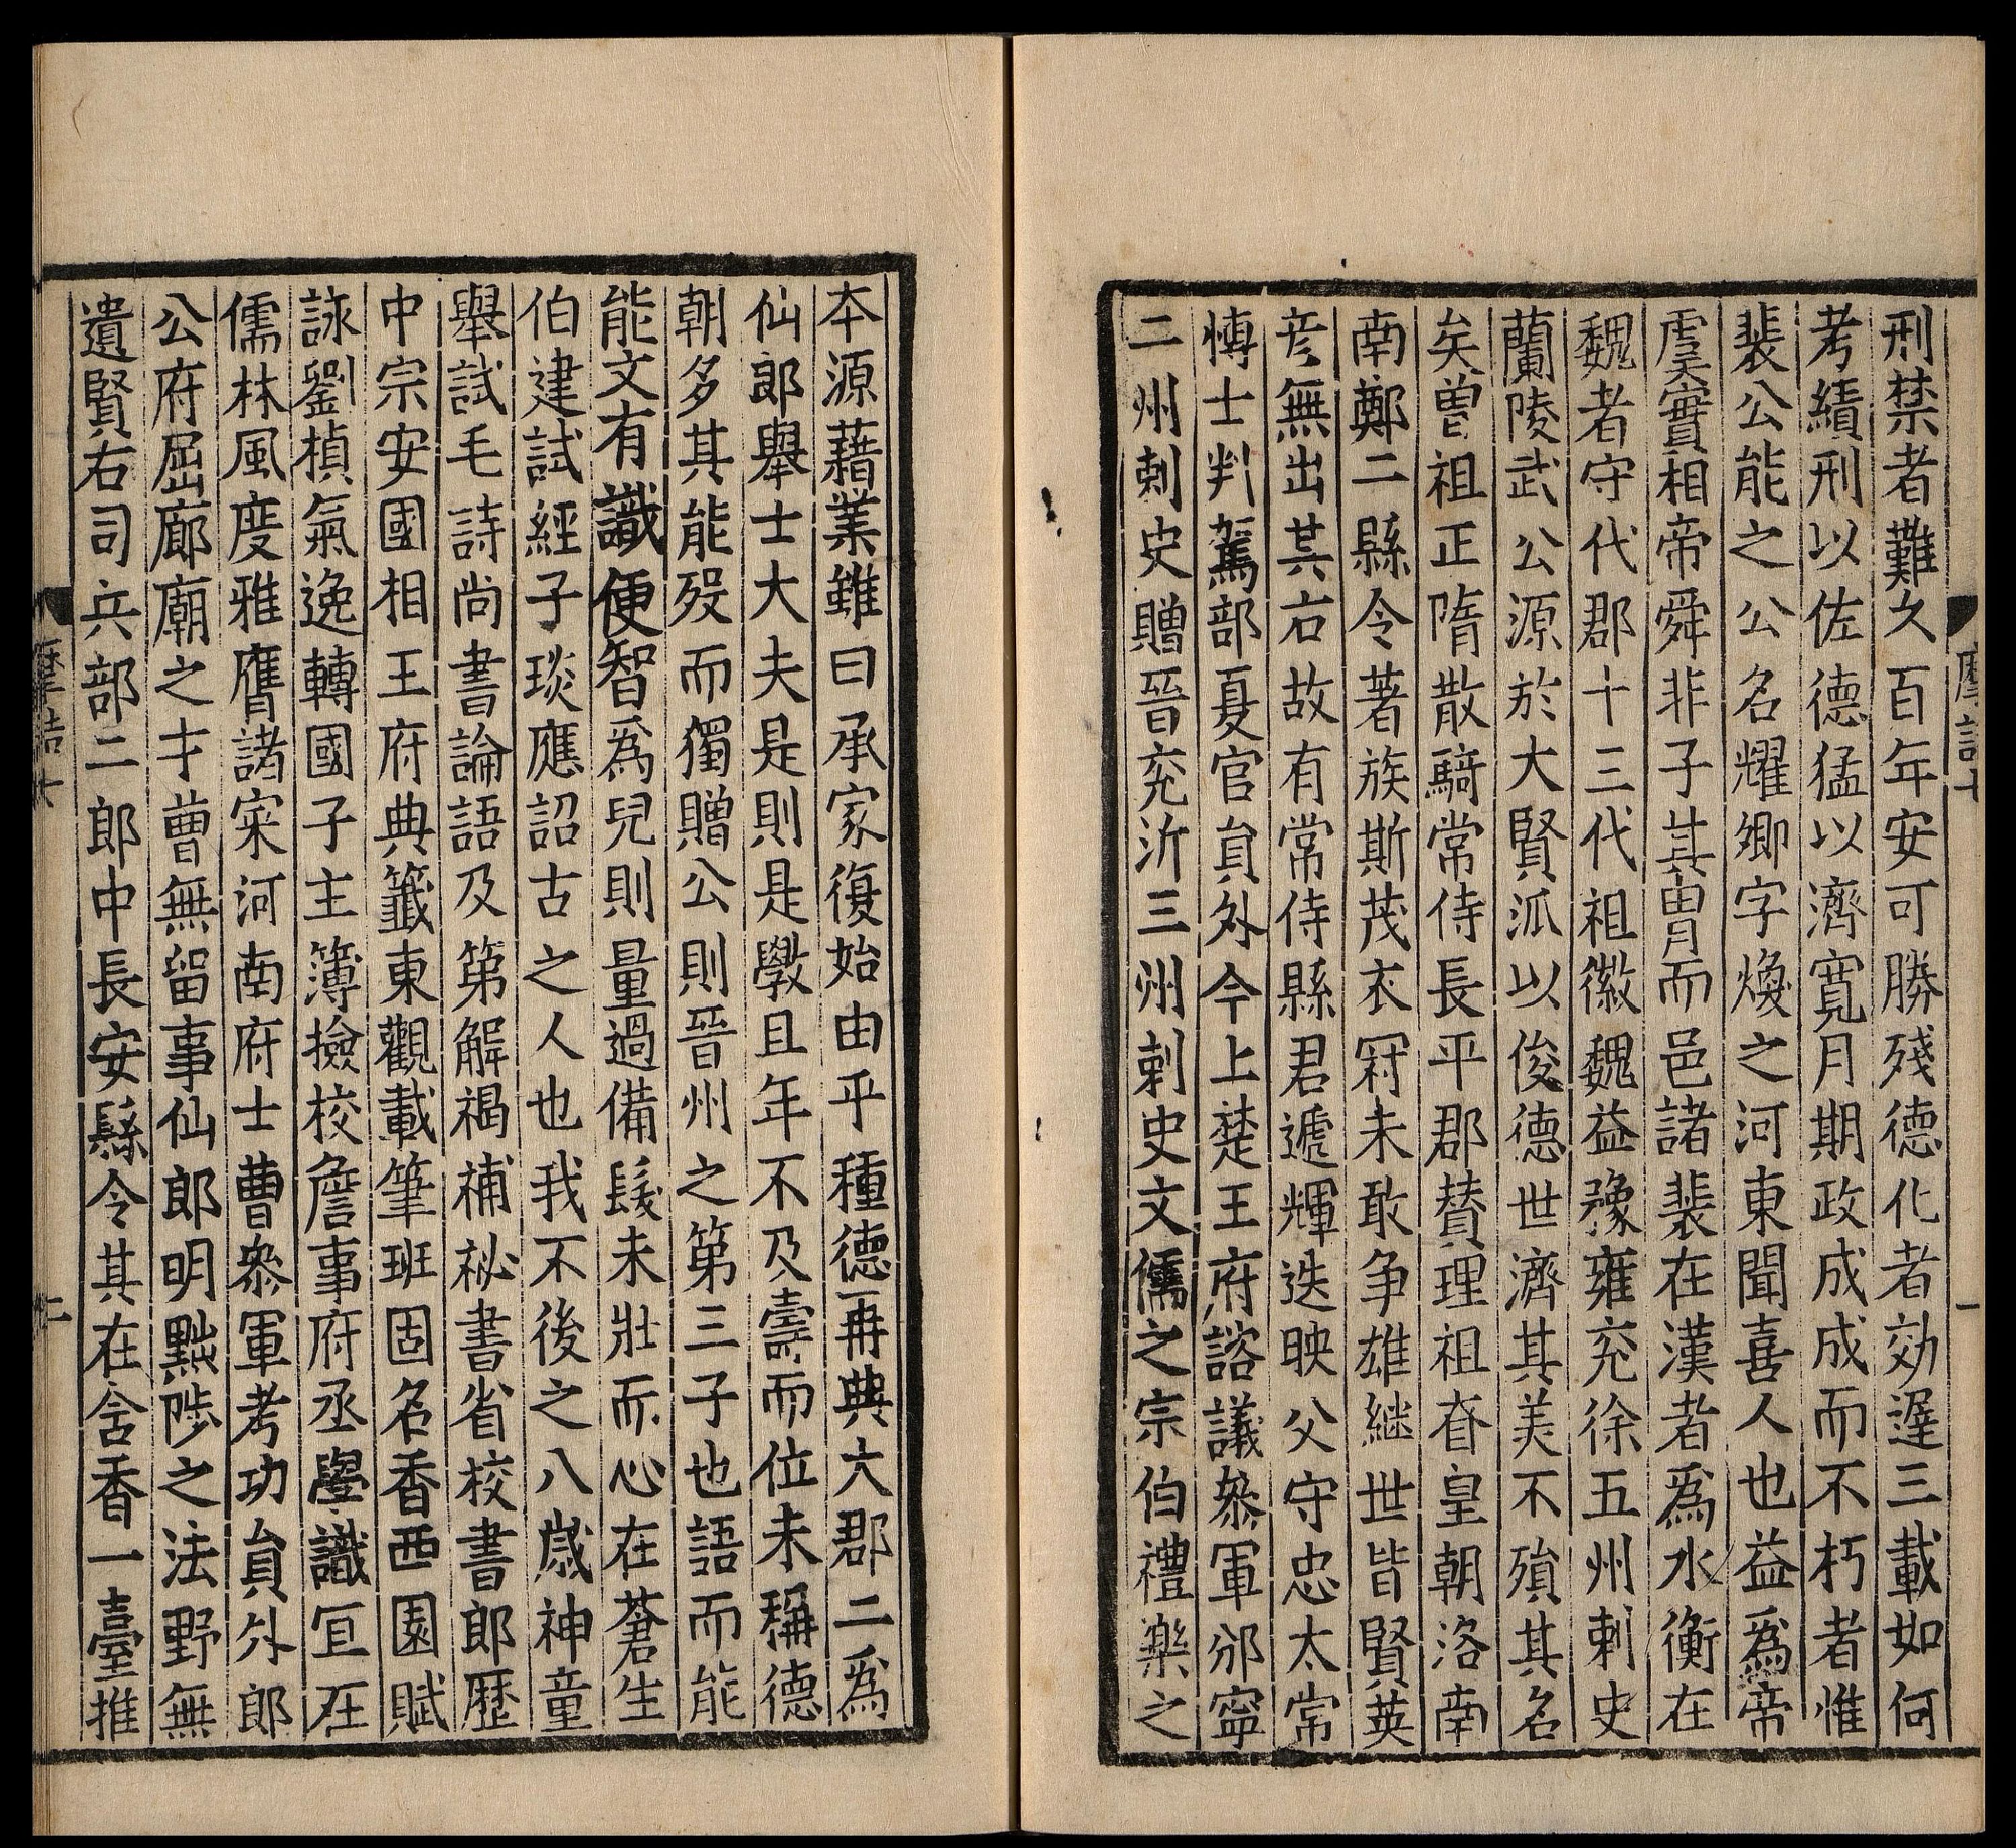 刑禁者難久百年安可勝殘德化者効遲三載如何
考績刑以佐德猛以濟寬月期政成成而不朽者惟
裴公能之公名耀卿字煥之河東聞喜人也益為帝
虞實相帝舜非子其胄而邑諸裴在漢者為水衡在
魏者守代郡十三代祖徽魏益豫雍兗徐五州刺史
蘭陵武公源於大賢派以俊德世濟其美不殞其名
矣曾祖正隋散騎常侍長平郡贊理祖昚皇朝洛南
南鄭二縣令著族斯茂衣冠未敢争雄継世皆賢英
彦無出其右故有常侍縣君遞輝迭映父守忠太常
博士判駕部夏官負外今上楚王府諮議叅軍邠寧
二州刺史贈晉兗沂三州刺史文儒之宗伯禮樂之
本源藉業雖曰承家復始由乎種德再典大郡二為
仙郎舉士大夫是則是斆且年不及壽而位未稱德
朝多其能殁而獨贈公則晉州之第三子也語而能
能文有識便智為兒則量過備髮未壯而心在蒼生
伯建試經子琰應詔古之人也我不後之八歲神童
舉試毛詩尚書論語及第解褐補祕書省校書郎歷
中宗安國相王府典籤東觀載筆班固名香西園賦
詠劉楨氣逸轉國子主簿撿校詹事府丞學識冝在
儒林風度雅膺諸寀河南府士曹叅軍考功負外郎
公府屈廊廟之才曹無留事仙郎明黜陟之法野無
遺賢右司兵部二郎中長安縣令其在含香一臺推